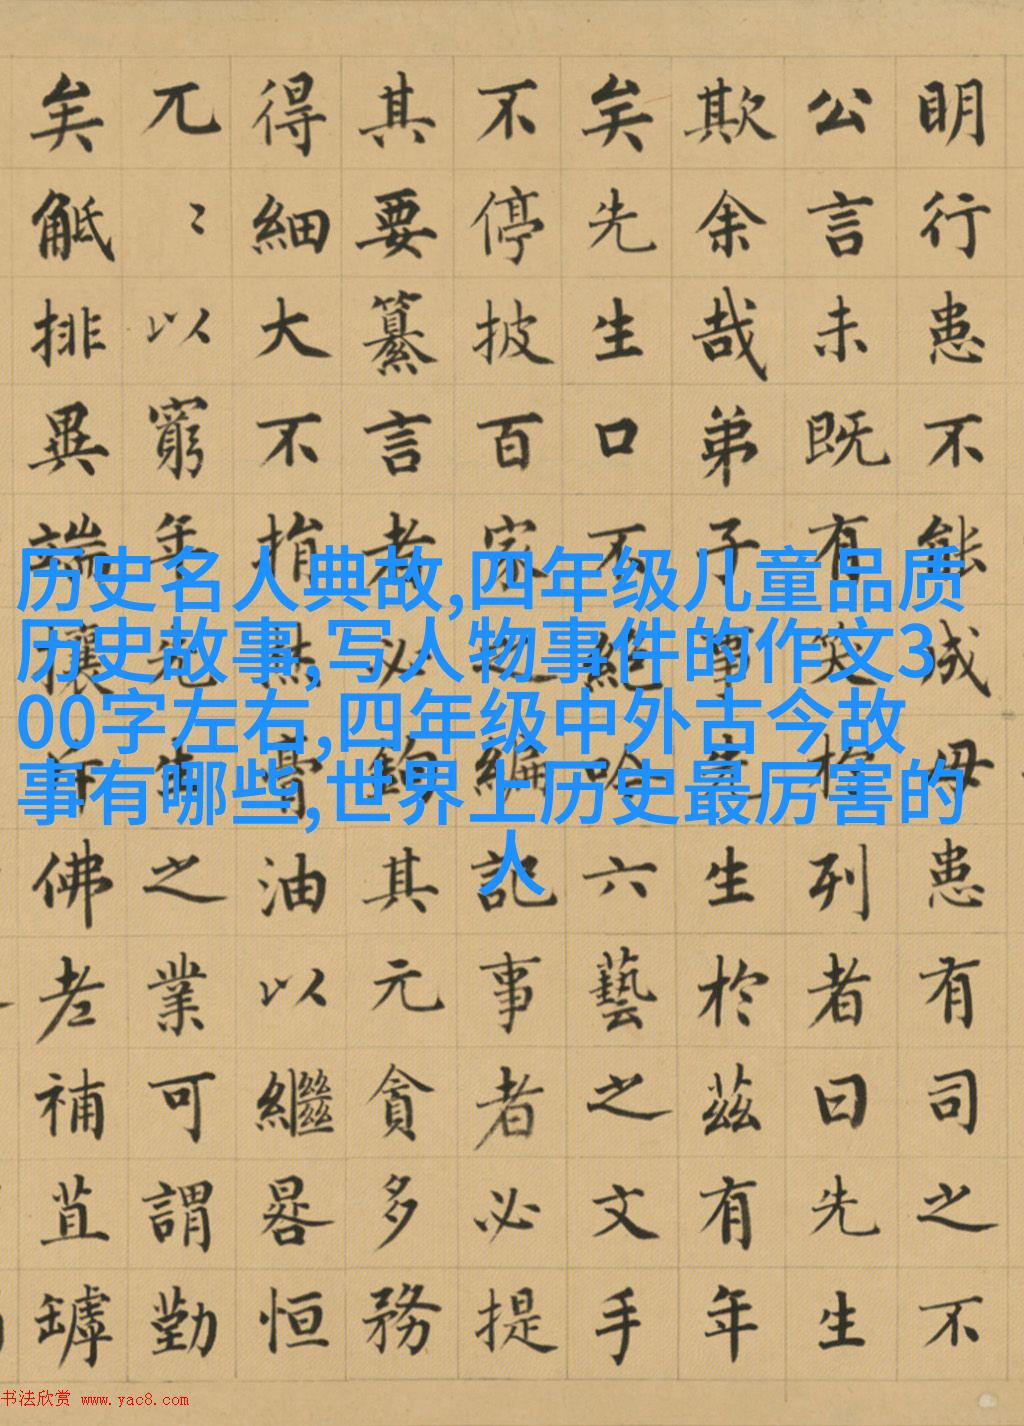 明行患不能成毋患有司之不
公言未既有笑於列者曰先生
欺余哉弟子事先生於茲有年
矣先生口不絕吟六藝之文手
不停披百家之編記事者必提
其要纂言者必鉤其元貪多務
得細大不捐焚膏油以繼晷恒
兀〻以窮年先生之業可謂勤
矣觝排異端攘斥佛老補苴罅
历史名人典故,四年级儿童品质
历史故事,写人物事件的作文3
00字左右,四年级中外古今故
事有哪些,世界上历史最厉害的
人
书法欣赏 www.yac8.com